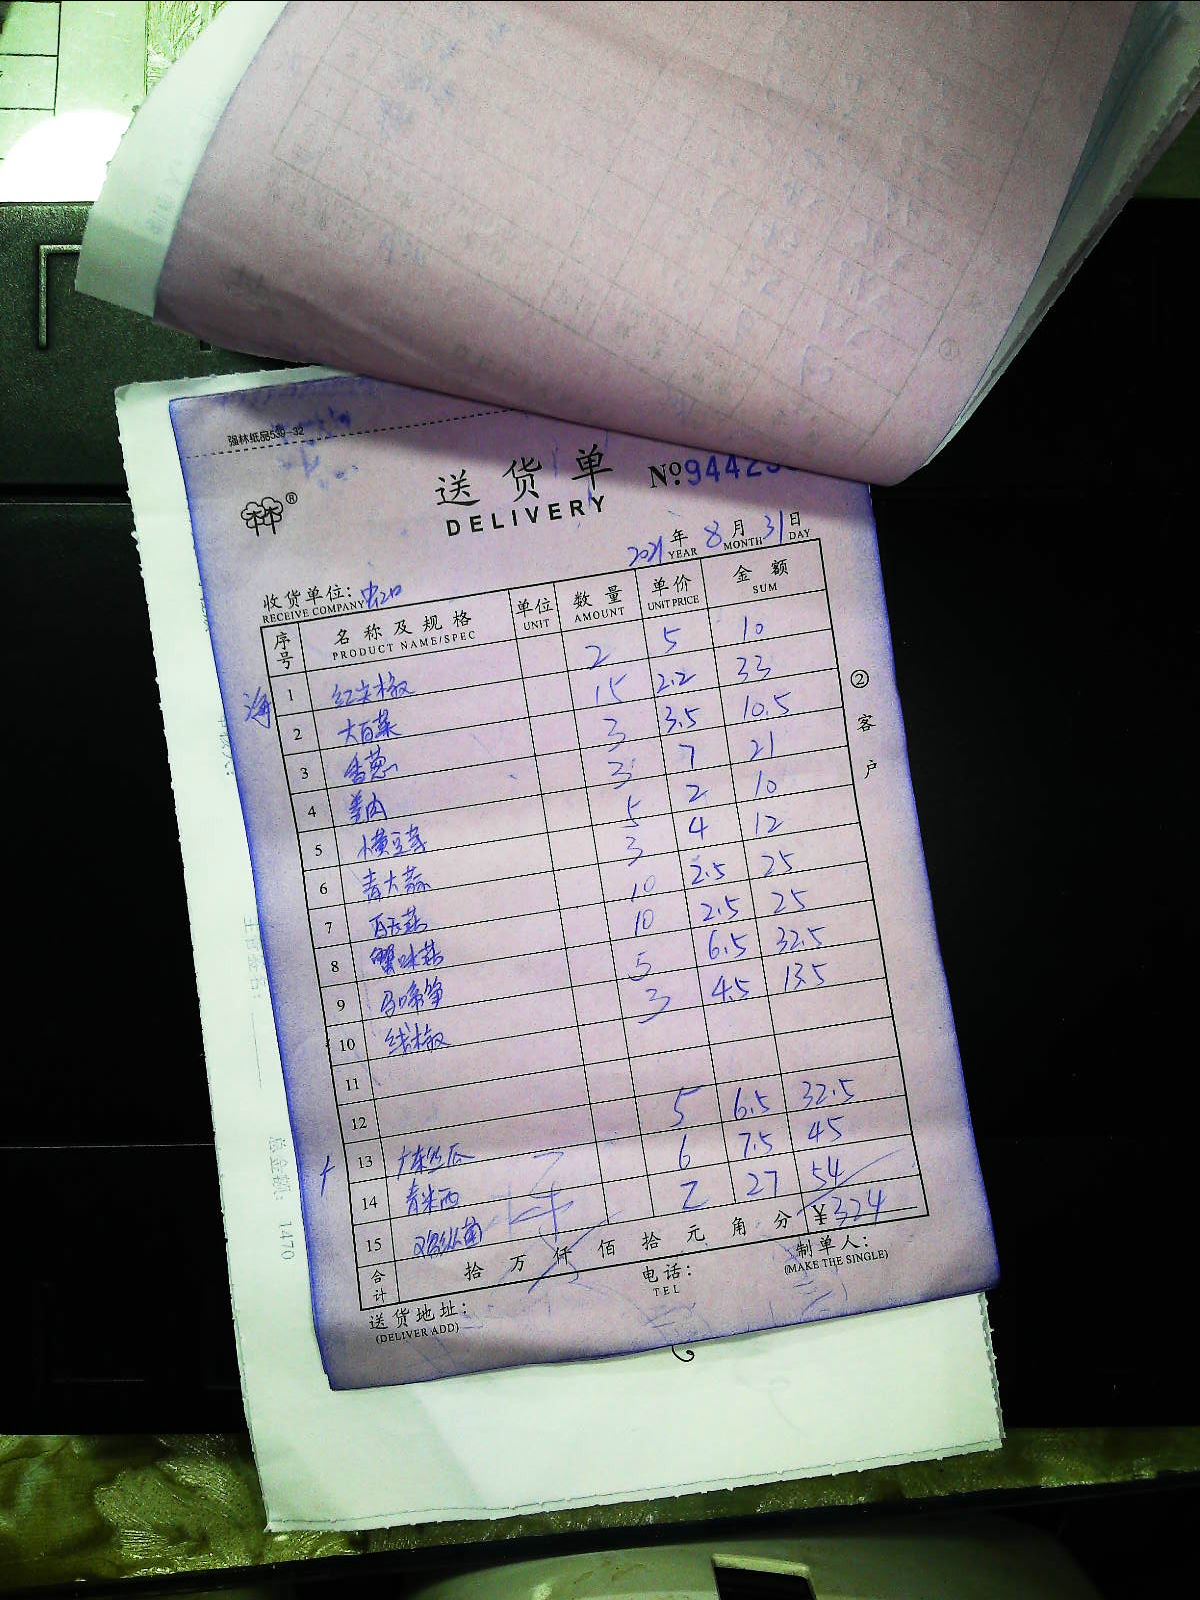 强林纸品539-32
送货单 No.94423
DELIVERY
2021年 8月 31日
YEAR MONTH DAY
收货单位:
RECEIVE COMPANY
序号 名称及规格 单位 数量 单价 金额
PRODUCT NAME/SPEC UNIT AMOUNT UNIT PRICE SUM
海
1 红尖椒 2 5 10
2 大白菜 15 2.2 33
3 香葱 3 3.5 10.5
4 姜肉 3 7 21
5 小黄豆芽 5 2 10
6 青大蒜 3 4 12
7 白玉菇 10 2.5 25
8 蟹味菇 10 2.5 25
9 马蹄笋 5 6.5 32.5
10 线椒 3 4.5 13.5
11
12
13 广东丝瓜 5 6.5 32.5
14 青米西 6 7.5 45
15 鸡枞菌 2 27 54
合计 拾 万 仟 佰 拾 元 角 分 ¥324
送货地址: 电话: 制单人:
(DELIVER ADD) TEL (MAKE THE SINGLE)
②客户
总金额: 1470